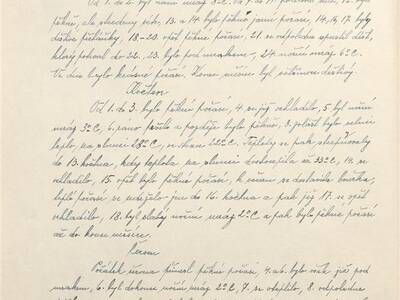 pěkně, ale všechny sich, 13. a 14 bylo pěkné jarní počasí, 14, 16, 17 byly
dešťové přeháňky, 18.-20 opět pěkné počasí, 21. se odpoledne spustil déšť,
který potrval do 22. 23. bylo pod mrakem, 24 noční mráz 6° C.
Ve dne bylo krásné počasí. Konec měsíce byl
Květen
Od 1. do 3. bylo pěkné počasí, 4. se již ochladilo, 5 byl noční
mráz 3° C, 6. ráno pršelo a později bylo pěkně, 8. května bylo velmi
teplo, na slunci 28° C, ve stínu 22° C. Teploty se pak stupňovaly
do 13. května, kdy teplota na slunci dosahovala až 33° C, 14. se
ochladilo, 15. opět bylo pěkné počasí, k večeru se dostavila bouřka,
teplé počasí se udrželo jen do 16. května a pak již 17. se opět
ochladilo, 18. byl slabý noční mráz 2° C a pak bylo pěkné počasí
až do konce měsíce.
Červen
Počátek června přinesl pěkné počasí, 4. a 5. bylo však již pod
mrakem, 6. byl dokonce noční mráz 2° C, 7. se oteplilo, 8. odpoledne